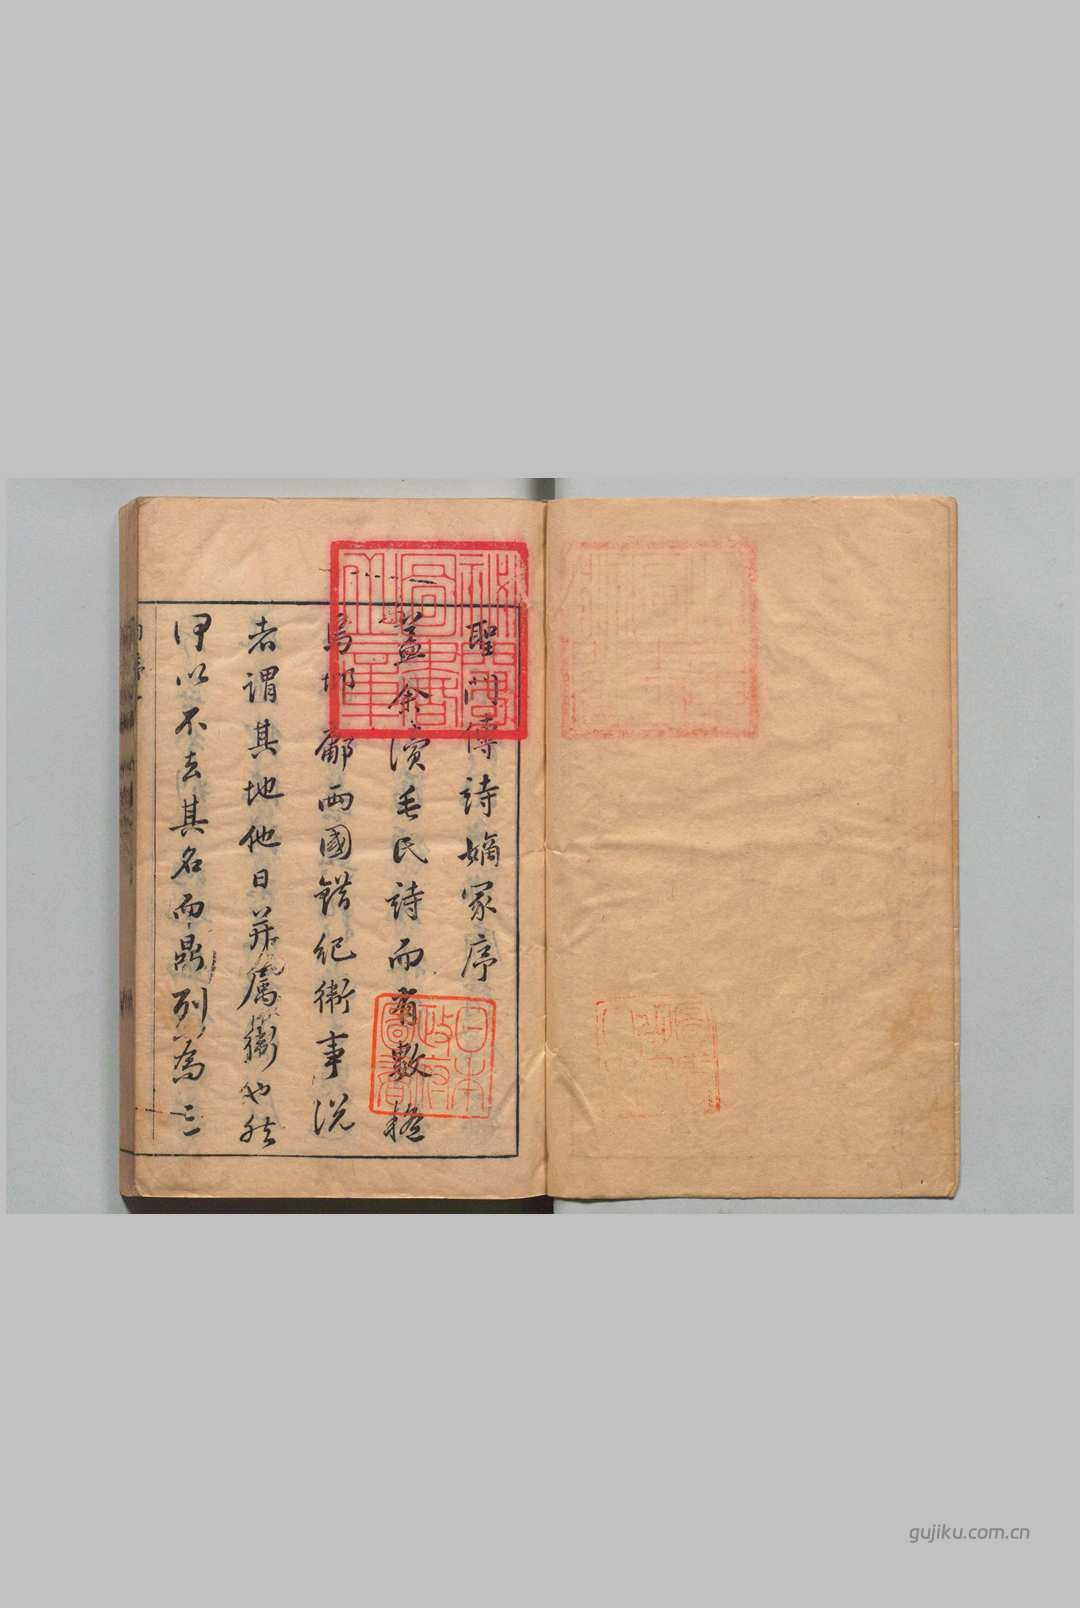 聖門傳詩嫡冢序
蓋余讀毛氏詩而有數疑
焉邶鄘兩國錯紀衛事説
者謂其地他日并屬衛也然
何以不去其名而鼎列爲三
日本
政府
圖書
gujiku.com.cn